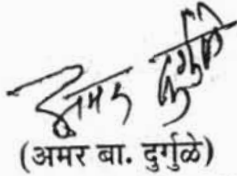 अमर दुर्गुळे
(अमर बा. दुर्गुळे)